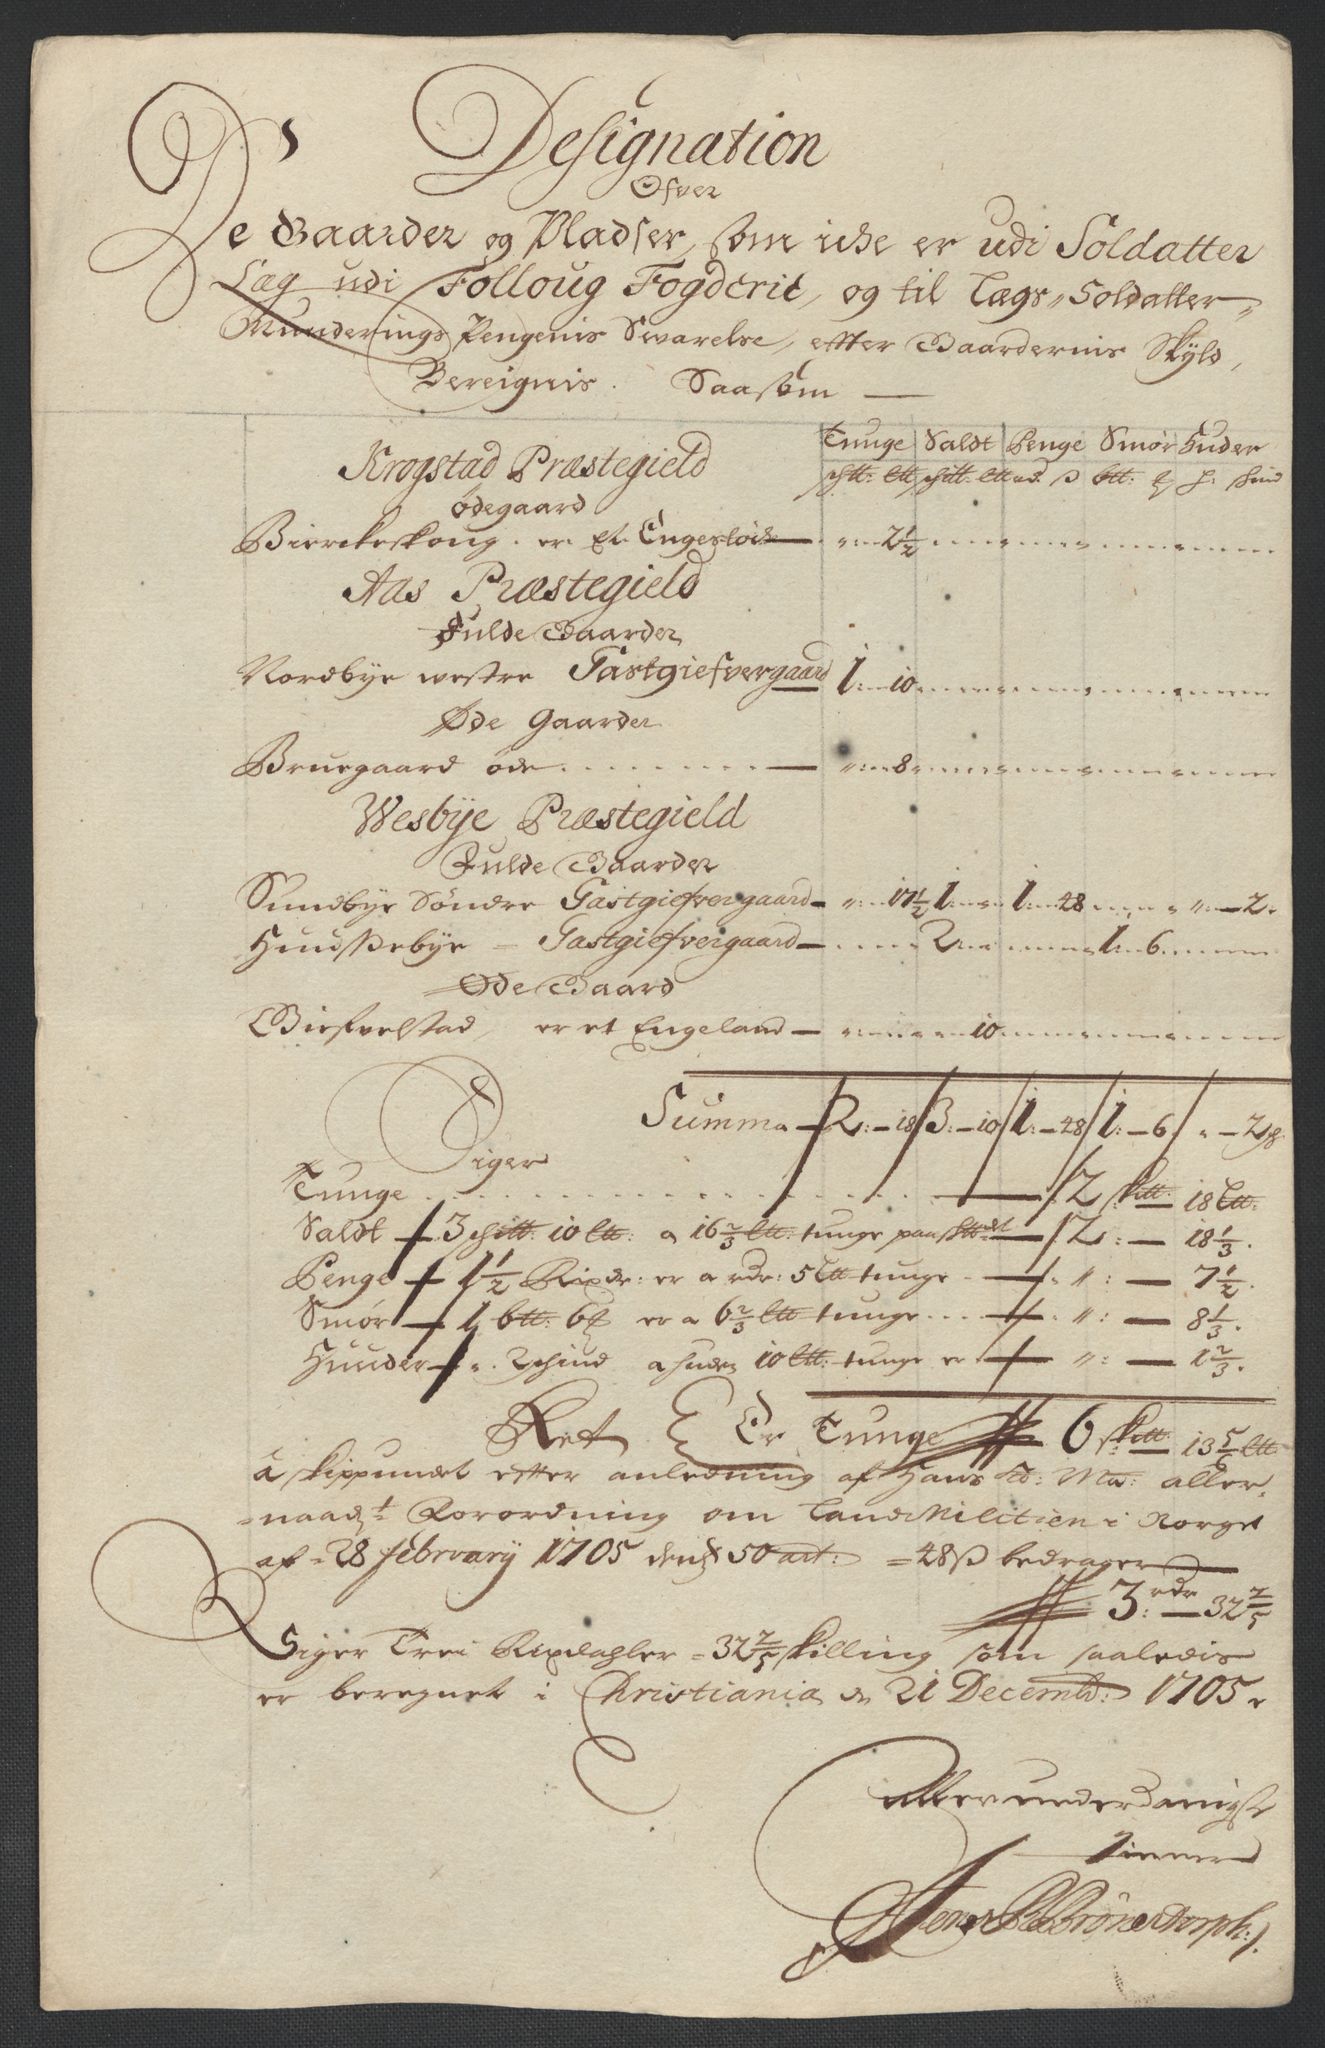 Designation
Ofver
De Gaarder og Pladser, som icke er udi Soldatter
Læg udi Folloug Fogderie, og til Lægs Soldatter
Munderings Pengenis Svarelse, efter Gaardernis Skyld,
Bereignis. Saasom —
Tunge Saldt Penge Smør Huder
Krogstad Præstegield
schtt: ltt schtt: ltt rd. ß btt: h: skind
Ødegaard
Bierckeskoug er et Engesløcke — " 2½
Aas Præstegield
Fulde Gaarder
Nordbye westre Gastgiefvergaard 1: 10
Øde Gaarder
Bruegaard øde — " 8
Wesbye Præstegield
Fulde Gaarder
Sundbye Søndre Gastgiefvergaard — " 17½ 1: " 1: 48 " — 2
Huusebye — Gastgiefvergaard — 2: 1: 6
Øde Gaard
Giefvelstad, er et Engeland — 10
Summa — 2: — 18 3: — 10 1: — 48 1: — 6 " — 2
Siger
Tunge — 2 sktt: 18 ltt:
Saldt — 3 schtt: 10 ltt: a 16⅔ ltt: tunge paa — 2: — 18⅓.
Penge — 1½ Rixdr: er a rdr: 5 ltt tunge — " : — 7½.
Smør — 1 btt: 6 er a 6⅔ ltt tunge — " : — 8⅓.
Huuder — " 2 schind a huden 10 ltt: tunge er — " : — 1⅔.
Ret Er Tunge 6 sktt 13⅚ ltt
à skippundet efter anledning af Hans Ko: Ma: aller-
naadt Forordning om Land Militien i Norge
af 28 february 1705 dens 50 art: = 48 ß bedrager
3: rdr — 32 2/5
Siger Trei Rixdahler = 32 2/5 skilling som saaledis
er beregnet i Christiania d 21 Decemb: 1705
allerunderdanigst
tienner